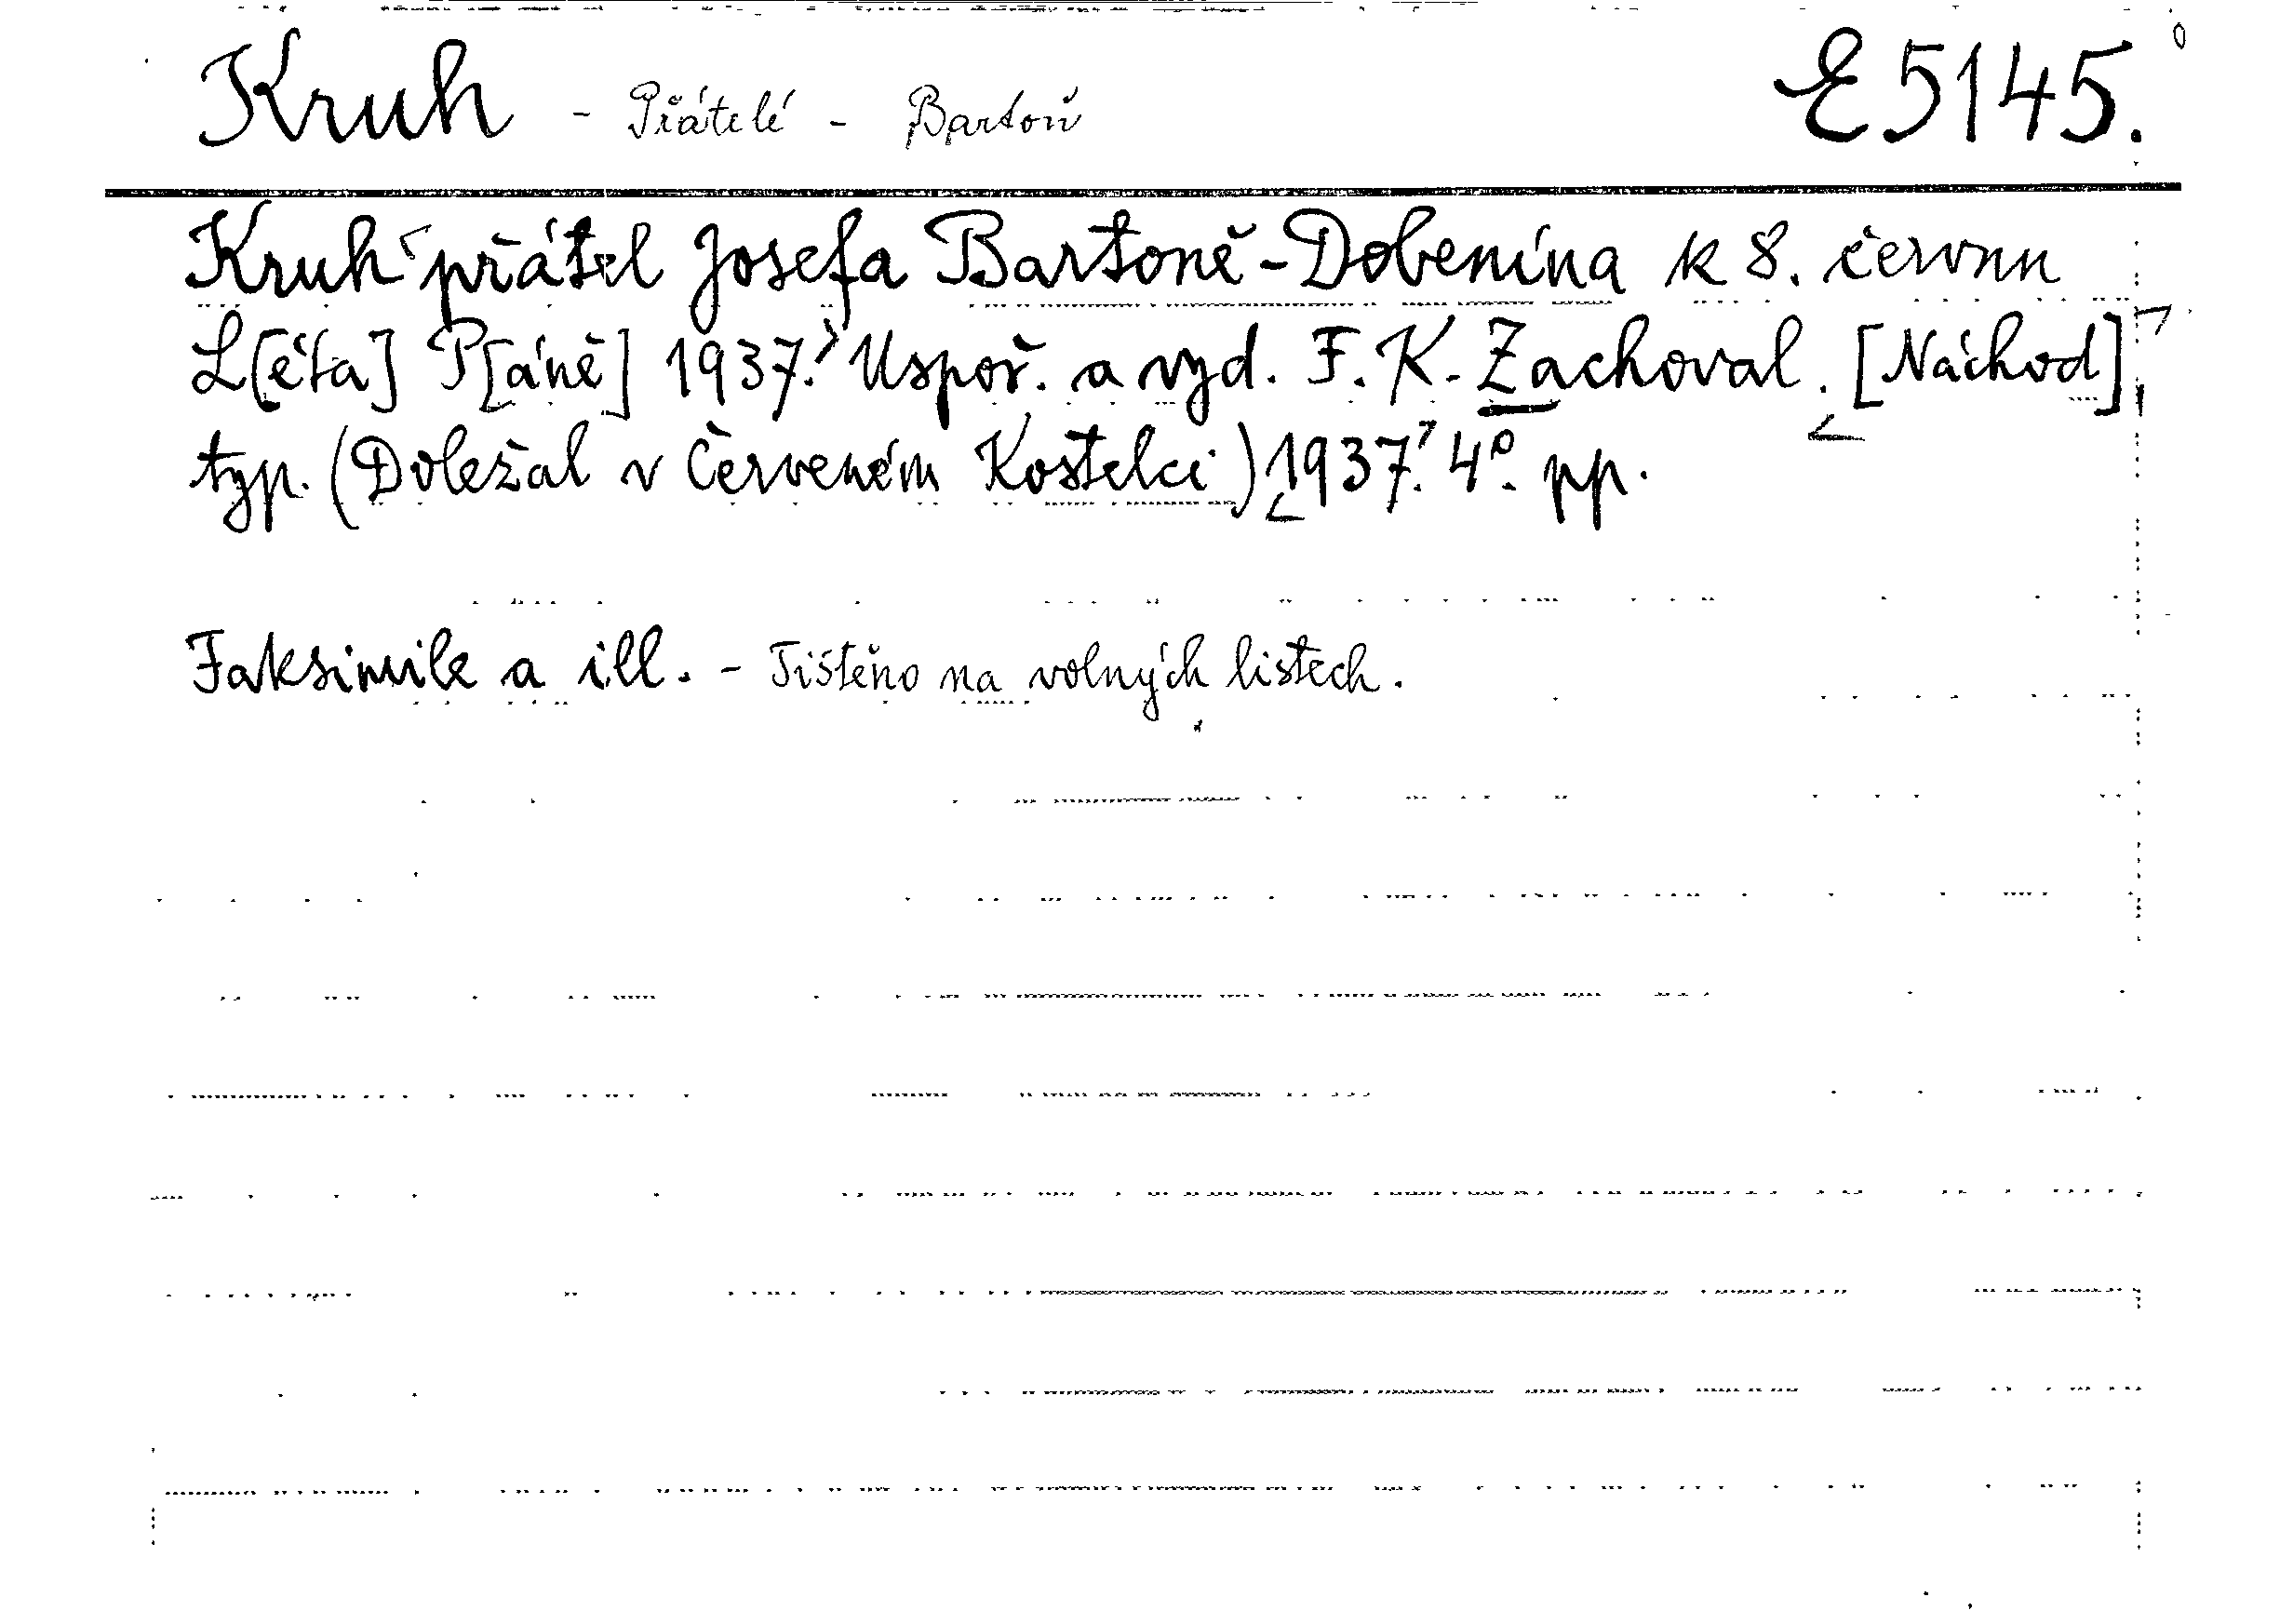 Kruh - Přátelé - Bartoň E 5145.
Kruh přátel Josefa Bartoně-Dobenína k 8. červnu
L[éta] P[áně] 1937. Uspoř. a vyd. F. K. Zachoval. [Náchod],
typ. (Doležal v Červeném Kostelci) 1937. 4°. pp.
Faksimile a ill. - Tištěno na volných listech.